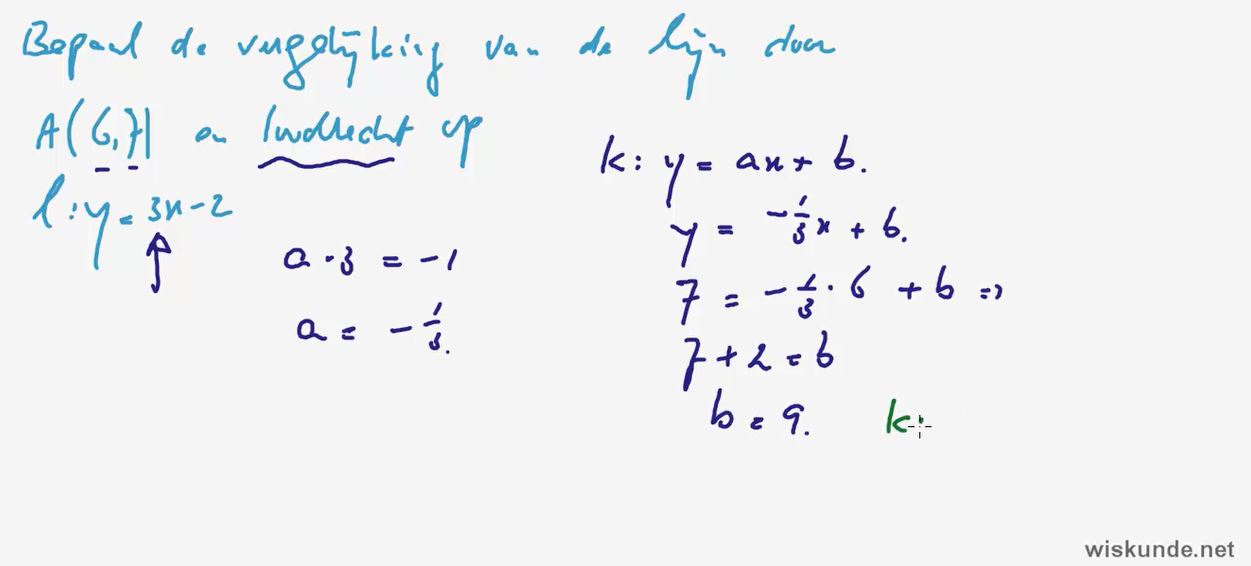 Bepaal de vergelijking van de lijn door
A(6,7) en loodrecht op
l: y = 3x - 2
a · 3 = -1
a = -1/3.
k: y = ax + b.
y = -1/3x + b.
7 = -1/3 · 6 + b =>
7 + 2 = b
b = 9.
k:
wiskunde.net